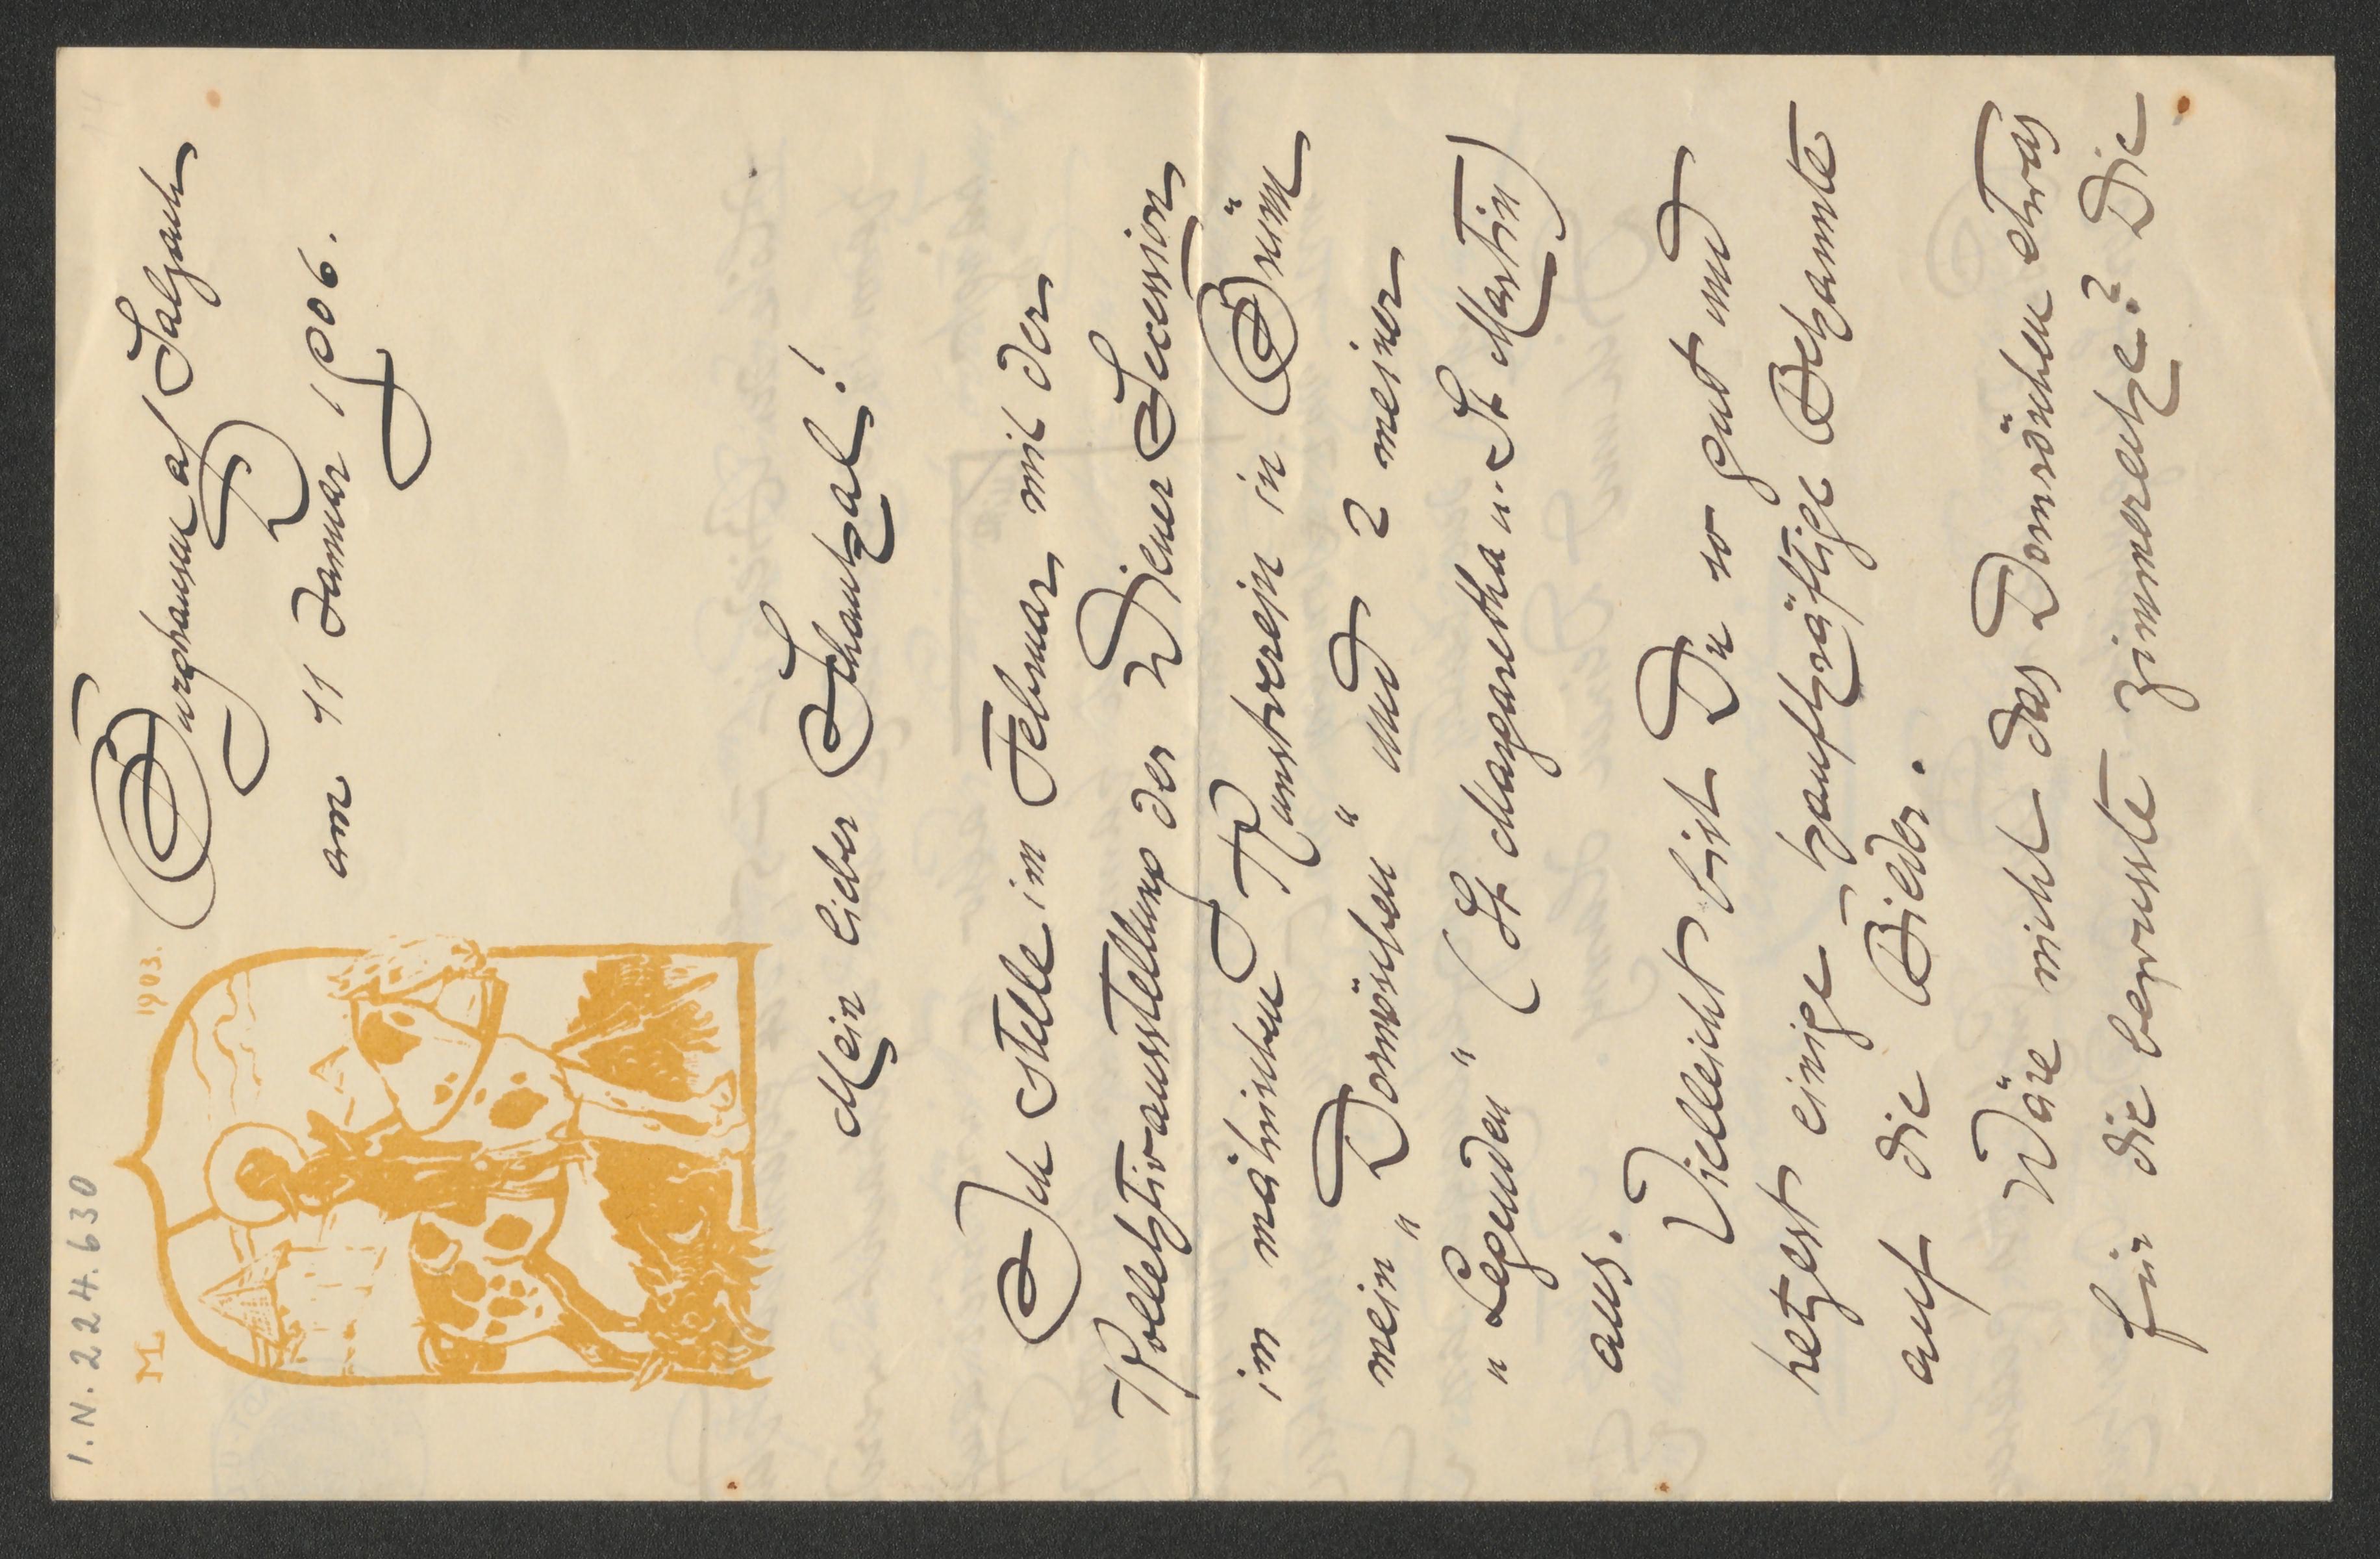 I.N. 224.630
M 1903.
Burghausen a/ Salzach
am 11 Januar 1906.
Mein lieber Schaukal!
Ich stelle im Februar mit der
Kollektivausstellung der Wiener Secession
im mährischen Kunstverein in Brünn
mein „Dornröschen“ und 2 meiner
„Legenden“ (St Margaretha u. St Martin)
aus.
Vielleicht bist Du so gut und
hetzest einige kaufkräftige Bekannte
auf die Bilder.
Wäre nicht das Dornröschen etwas
für die bewusste Zimmerecke? Die